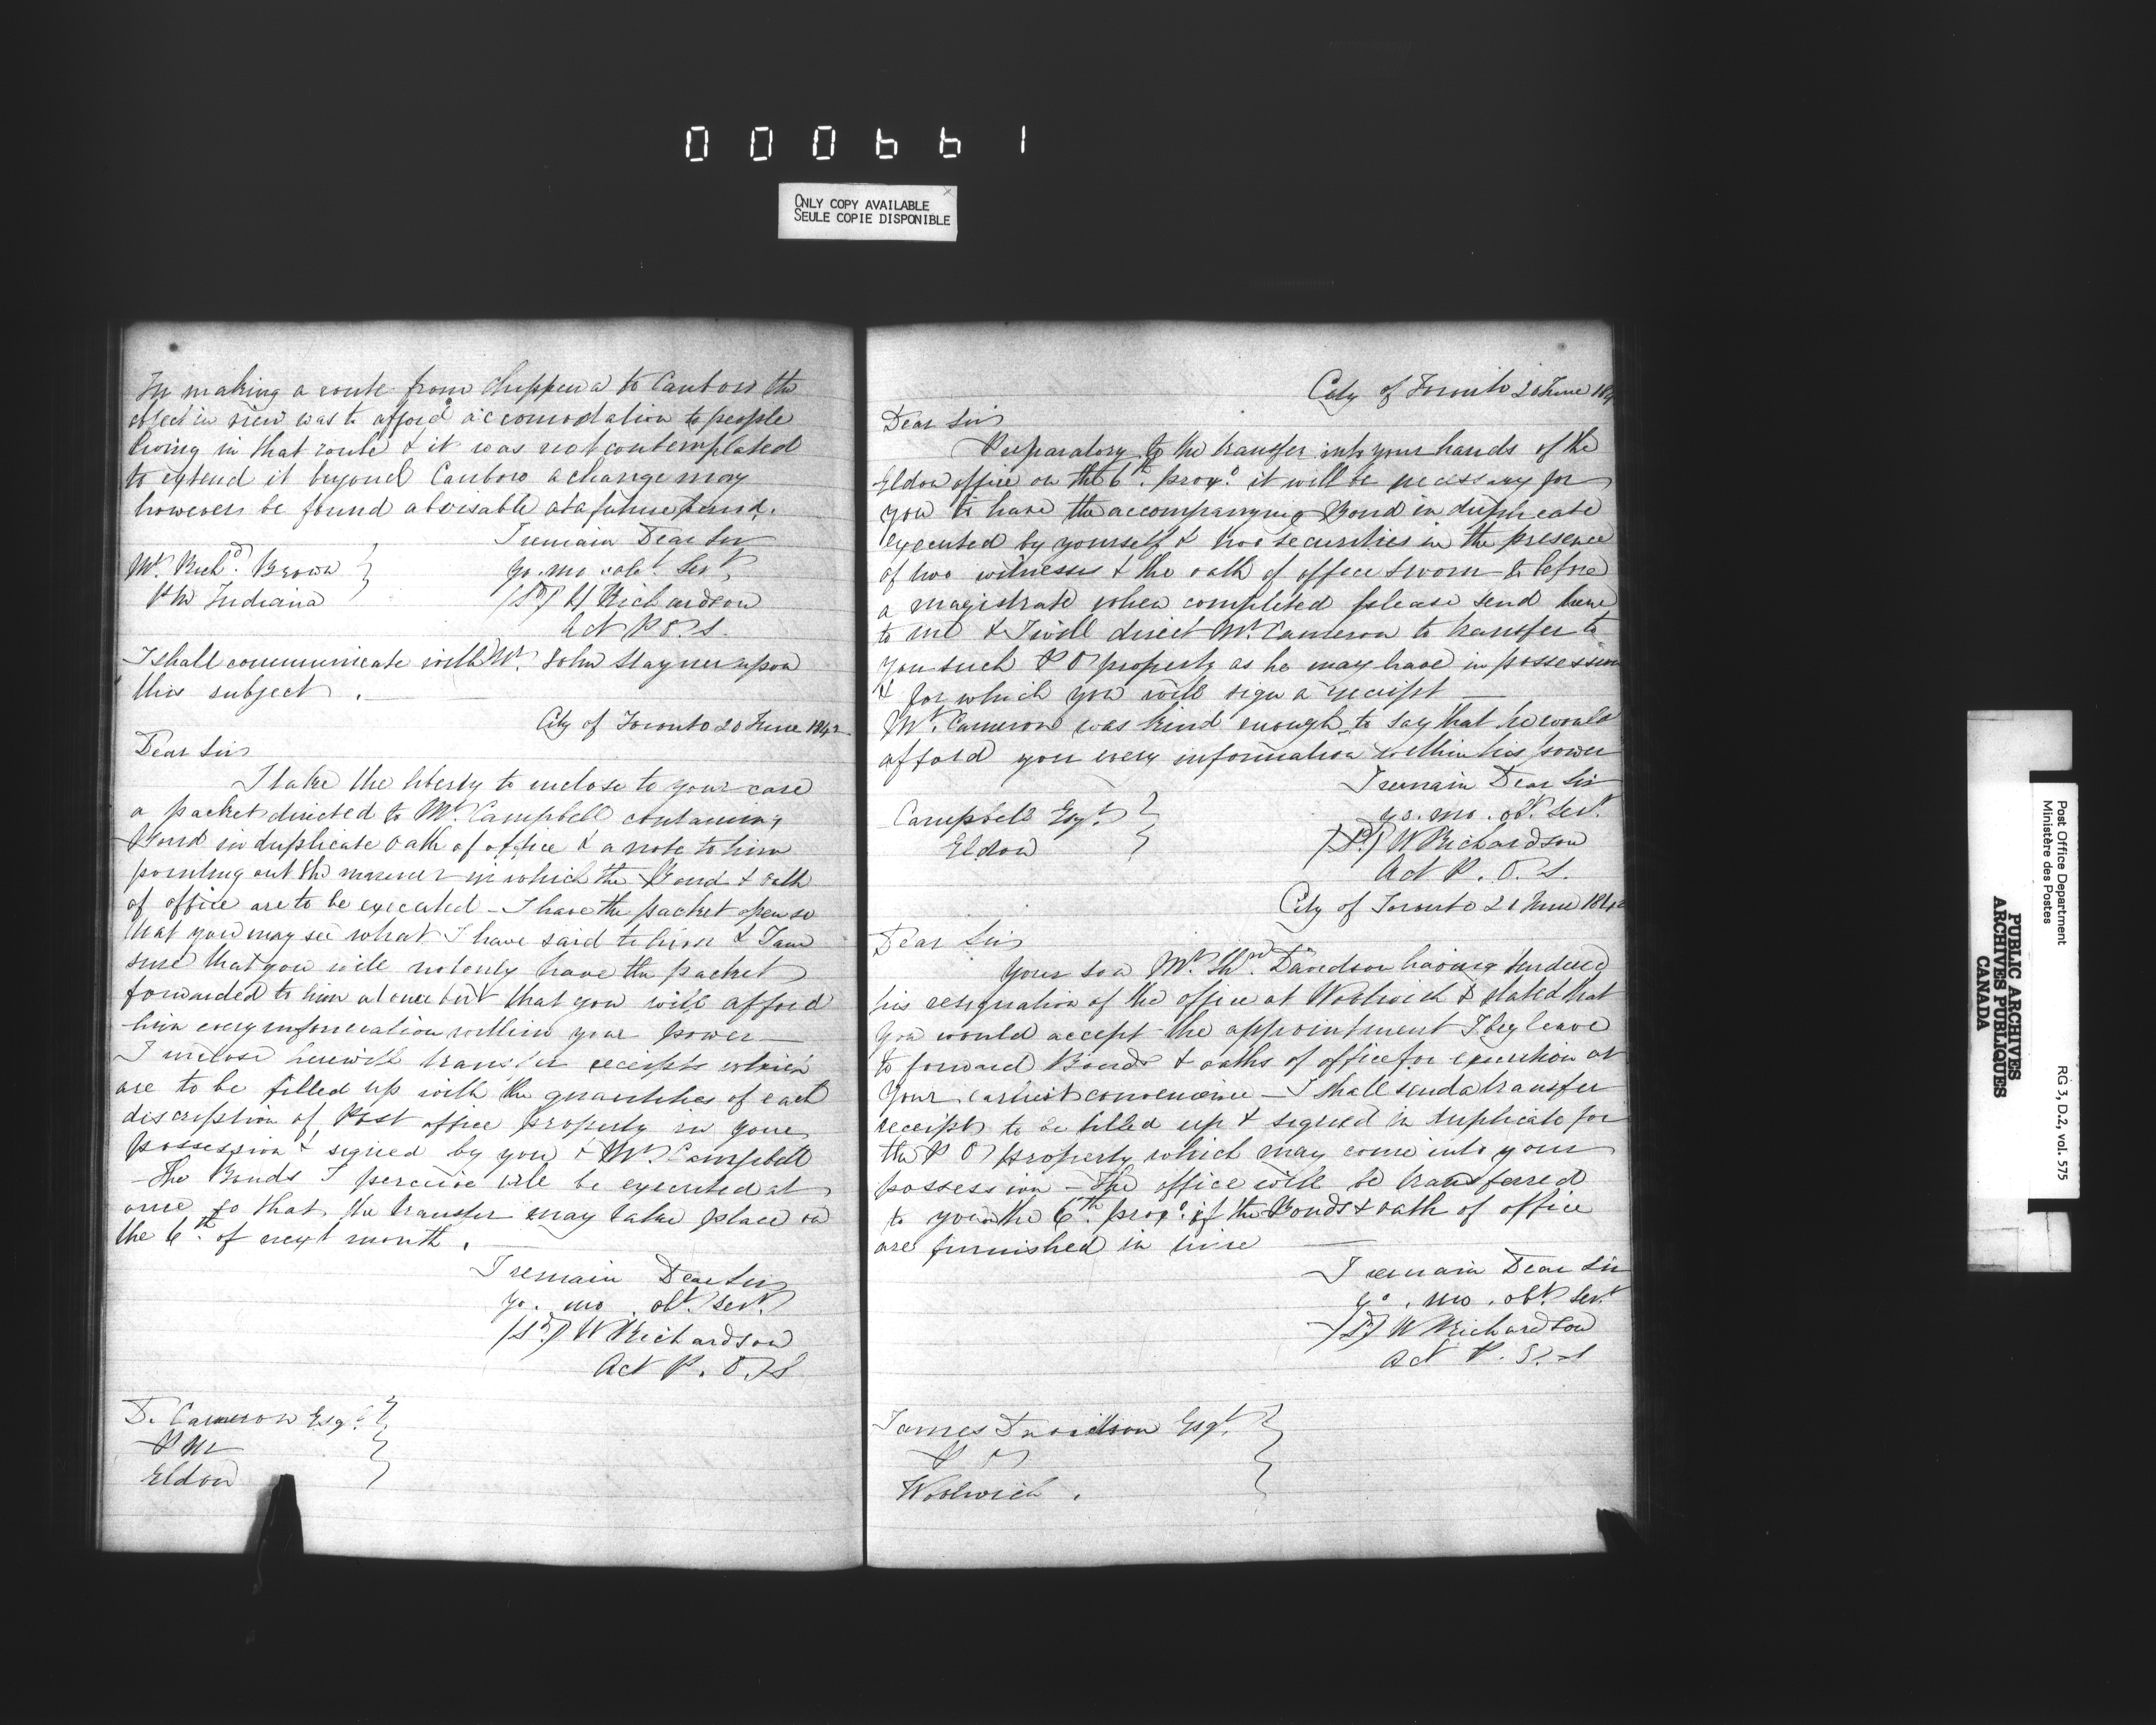 000661
ONLY COPY AVAILABLE
SEULE COPIE DISPONIBLE
In making a route from Chippewa to Canboro the
object in view was to afford accomodation to people
living in that route & it was not contemplated
to extend it beyond Canboro a change may
however be found advisable at a future
I remain Dear Sir
Yo. mo obt Sert
/Sd/ W Richardson
Act P O. S.
Mr. Richd. Brown
P M Indiana
I shall communicate with Mr. John Stayner upon
this subject.
City of Toronto 20 June 1842
Dear Sir
I take the liberty to inclose to your care
a packet directed to Mr. Campbell containing
Bond in duplicate oath of office & a note to him
pointing out the manner in which the Bond & oath
of office are to be executed - I have the packet open so
that you may see what I have said to him & I am
sure that you will not only have the packet
forwarded to him at once but that you will afford
him every information within your power —
I inclose herewith transfer receipts which
are to be filled up with the quantities of each
discription of Post office property in your
possession & signed by you & Mr. Campbell
- The Bonds I perceive will be executed at
once so that the transfer may take place on
the 6th. of next month.
I remain Dear Sir
Yo. mo. obt. Sert.
/Sd/ W Richardson
Act P. O. S
D. Cameron Esqr.
P M
Eldon
City of Toronto 20 June 184
Dear Sir
Preparatory to the transfer into your hands of the
Eldon office on the 6th. proxo. it will be necessary for
you to have the accompanying Bond in duplicate
executed by yourself & two securities in the presence
of two witnesses & the oath of office sworn to before
a magistrate when completed please send
to me & I will direct Mr. Cameron to transfer to
you such P O property as he may have in possession
& for which you will sign a receipt —
Mr. Cameron was kind enough to say that he would
afford you every information within his power
I remain Dear Sir
yo. mo. obt. Sert.
/Sd/ W Richardson
Act P. O. S.
Campbell Esqr.
Eldon
City of Toronto 21 June 1842
Dear Sir
Your son Mr. Davidson having tendered
his resignation of the office at Woolwich & stated that
you would accept the appointment I beg leave
to forward Bonds & oaths of office for execution at
your earliest convenience — I shall send a transfer
receipt to be filled up & signed in duplicate for
the P O property which may come into your
possession - The office will be transferred
to you on the 6th. proxo. if the Bonds & oath of office
are furnished in time —
I remain Dear Sir
yo. mo. obt. Sert.
/Sd/ W Richardson
Act P. O. S
James Davidson Esqr.
P O
Woolwich.
Post Office Department
Ministère des Postes
RG 3, D.2, vol. 575
PUBLIC ARCHIVES
ARCHIVES PUBLIQUES
CANADA